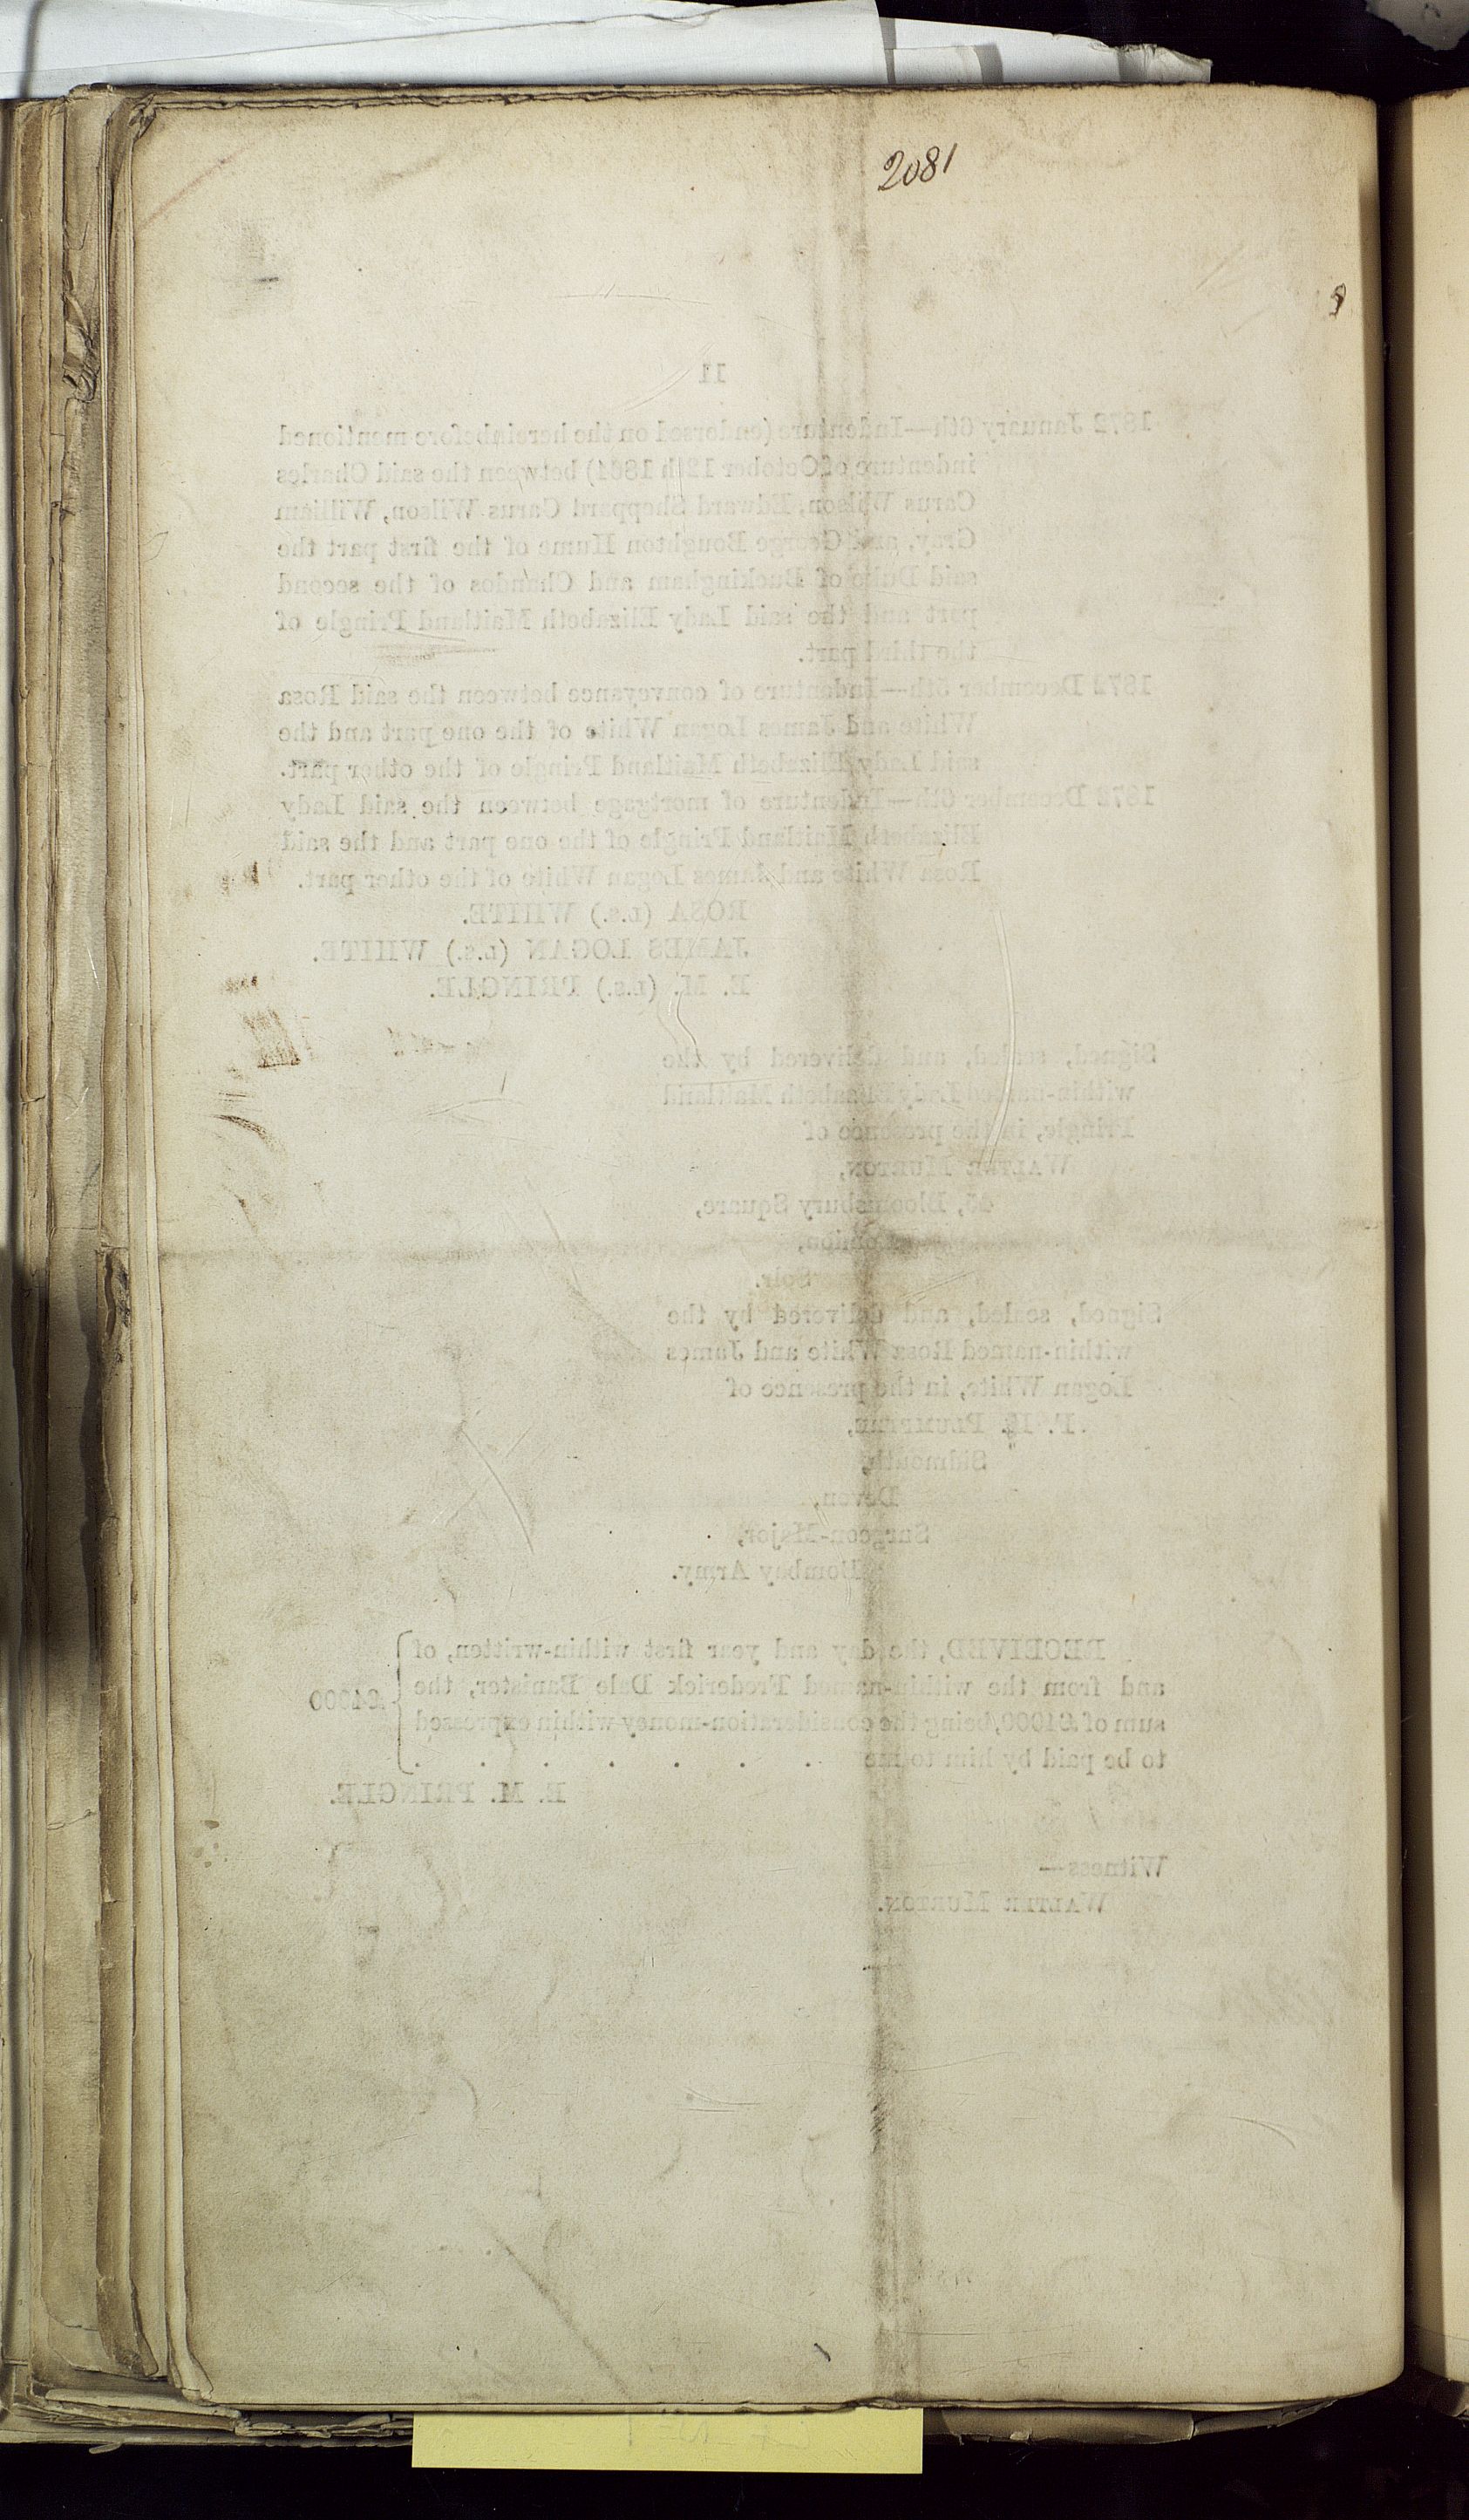 2081
11
1872 January 6th—Indenture (endorsed on the hereinbefore mentioned
indenture of October 12th 1864) between the said Charles
Carus Wilson, Edward Sheppard Carus Wilson, William
Gray, and George Boughton Hume of the first part the
said Duke of Buckingham and Chandos of the second
part and the said Lady Elizabeth Maitland Pringle of
the third part.
1872 December 5th—Indenture of conveyance between the said Rosa
White and James Logan White of the one part and the
said Lady Elizabeth Maitland Pringle of the other part.
1872 December 6th—Indenture of mortgage between the said Lady
Elizabeth Maitland Pringle of the one part and the said
Rosa White and James Logan White of the other part.
ROSA (L.S.) WHITE.
JAMES LOGAN (L.S.) WHITE.
E. M. (L.S.) PRINGLE.
Signed, sealed, and delivered by the
within-named Lady Elizabeth Maitland
Pringle, in the presence of
WALTER MURTON,
45, Bloomsbury Square,
London,
Solr.
Signed, sealed, and delivered by the
within-named Rosa White and James
Logan White, in the presence of
Sidmouth,
Devon,
Surgeon-Major,
Bombay Army.
RECEIVED, the day and year first within-written, of
and from the within-named Frederick Dale Banister, the
sum of £4000, being the consideration-money within expressed
to be paid by him to me . . . . . . . £4000
E. M. PRINGLE.
Witness—
WALTER MURTON.